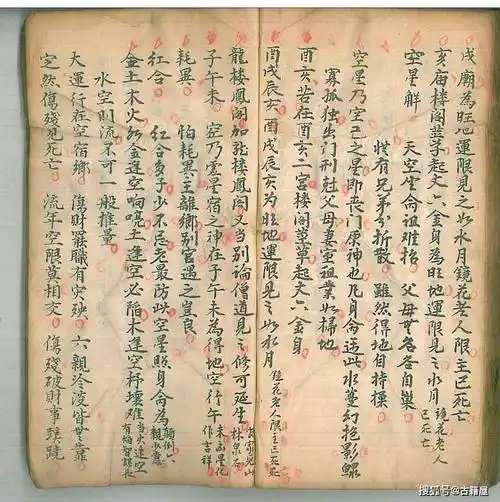 戌廟為旺地運限見之如水月鏡花老人限主已死亡
亥廟楼阁葢茅起丈六金身為旺地運限見之水月鏡花老人已死亡
空星觧 天空坐命祖难招 父母無名各自巢
惟有兄弟分折散 雖然得地自持操
空星乃空亡之星即丧门原神也凡身命逢此水夢幻艳影
寡孤独出门刑尅父母妻重祖業如掃地
酉亥若在酉亥二宮楼阁草起丈六金身
酉戌辰亥 酉戌辰亥为旺地運限見之如水月鏡花老人限主已死
龍楼鳳阁加龍楼鳳阁又当别論僧道見之修可延生林泉
子午未 空乃雲星宿之神在子午未為得地空行午作吉祥
耗異 怕耗異主離鄉别宮遇之豈良
紅合 紅合多子少不忘老最防此空星照身命為
金土木火 如金逢空响吭土逢空必陷木逢空朽壞难当火逢空有偏智謀長
水空則流不可一般推量
大運行在空宿鄉 損財罷職有灾殃 六親冷淡皆無靠
定然傷殘見死亡 流年空限莫相交 傷殘破財事蹊蹺
搜狐号@古籍屋